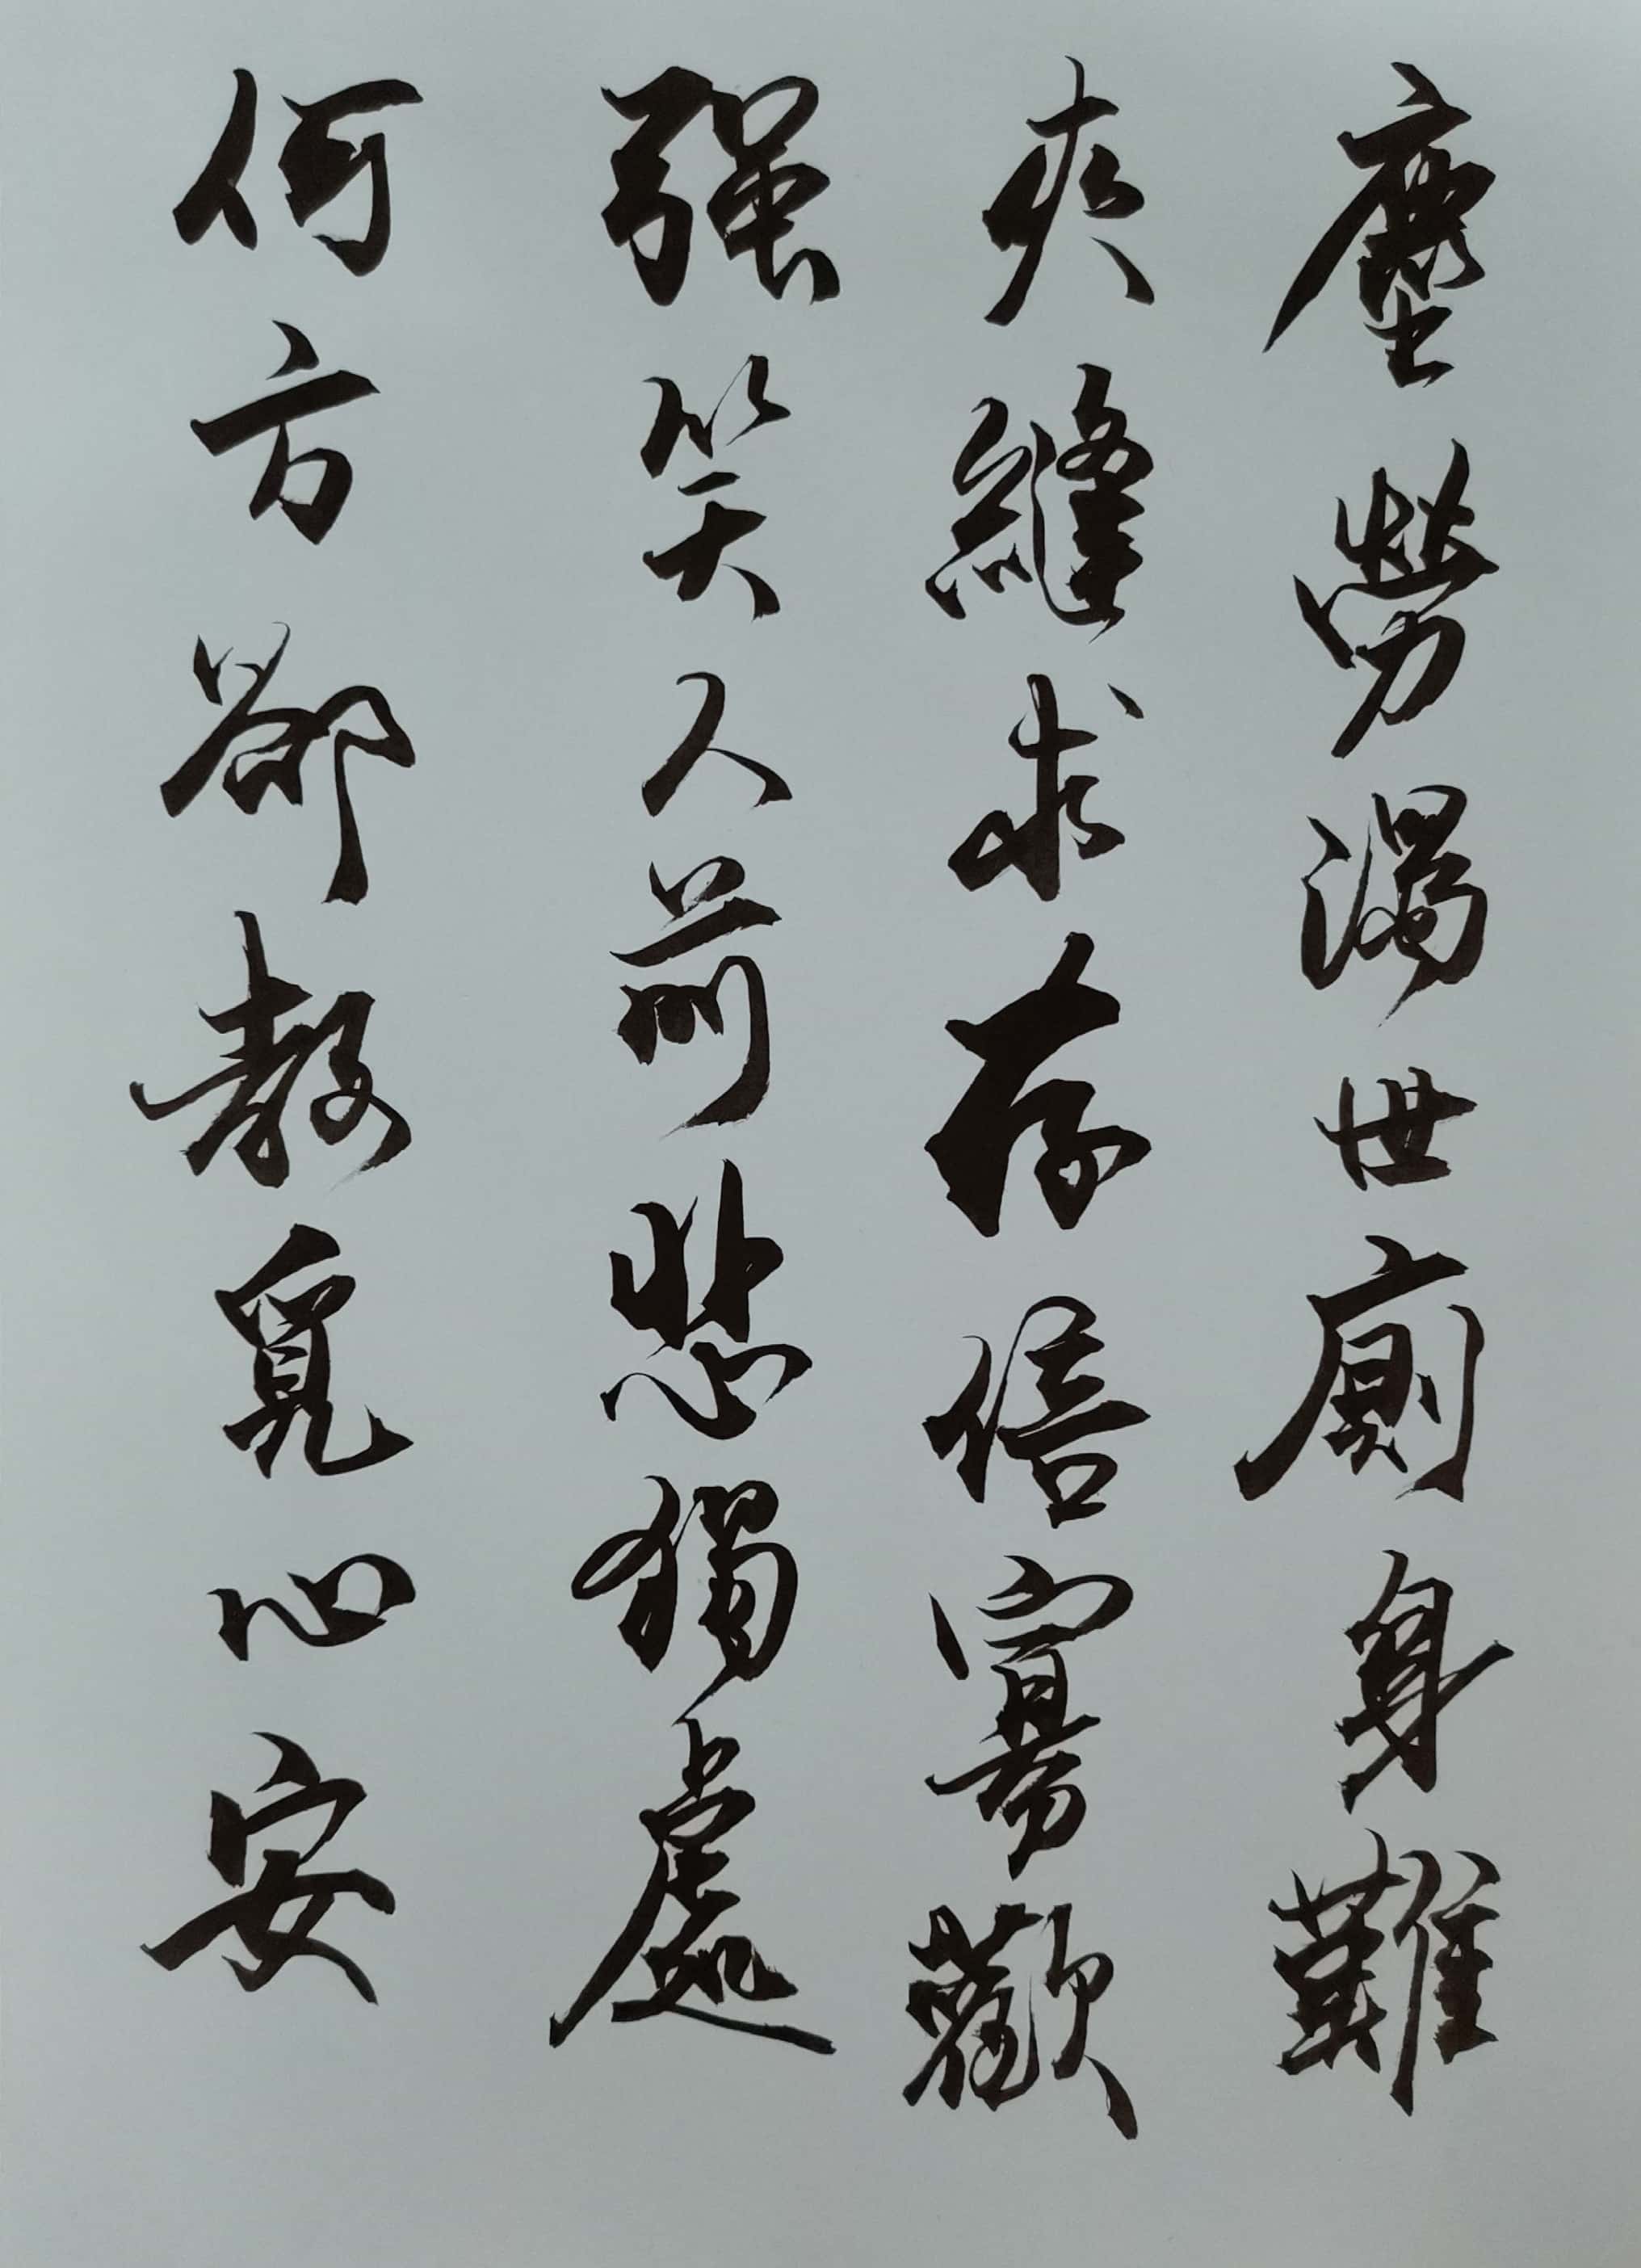 塵勞濁世廁身難
夾縫求存倍寡歡
强笑人前悲獨處
何方卻教覓心安